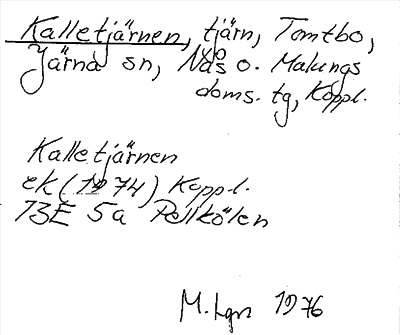 Kalletjärnen, tjärn, Tomtbo,
Järna sn, Nås o. Malungs
doms. tg, Koppl.
Kalletjärnen
ek (1974) Koppl.
13E 5a Pellkölen
M. Lgn 1976